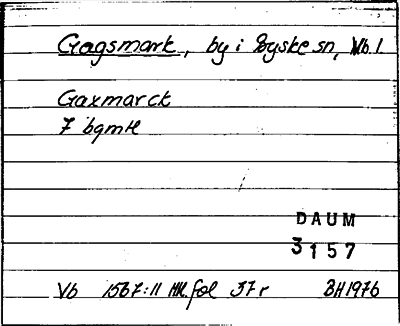 Gagsmark, by i Byske sn, Vb l.
Gaxmarck
7 bgmtl
DAUM
3157
Vb 1567:11 HR. fol 37r BH1976